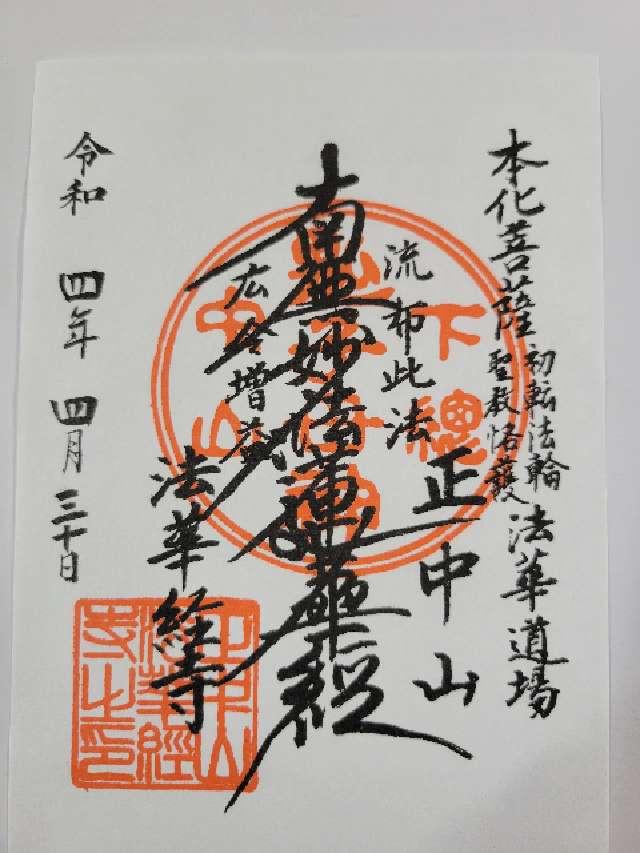 本化菩薩 初転法輪 法華道場
聖教恪護
正中山
流布此法
南無妙法蓮華経
広令増益
法華経寺
令和 四年 四月 三十日
下總
中山
正中山
法華經
寺之印